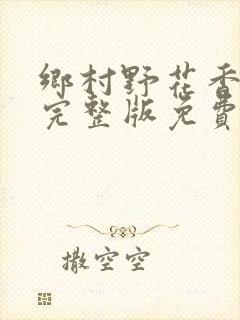 鄉村野花香
完整版免費
撒空空